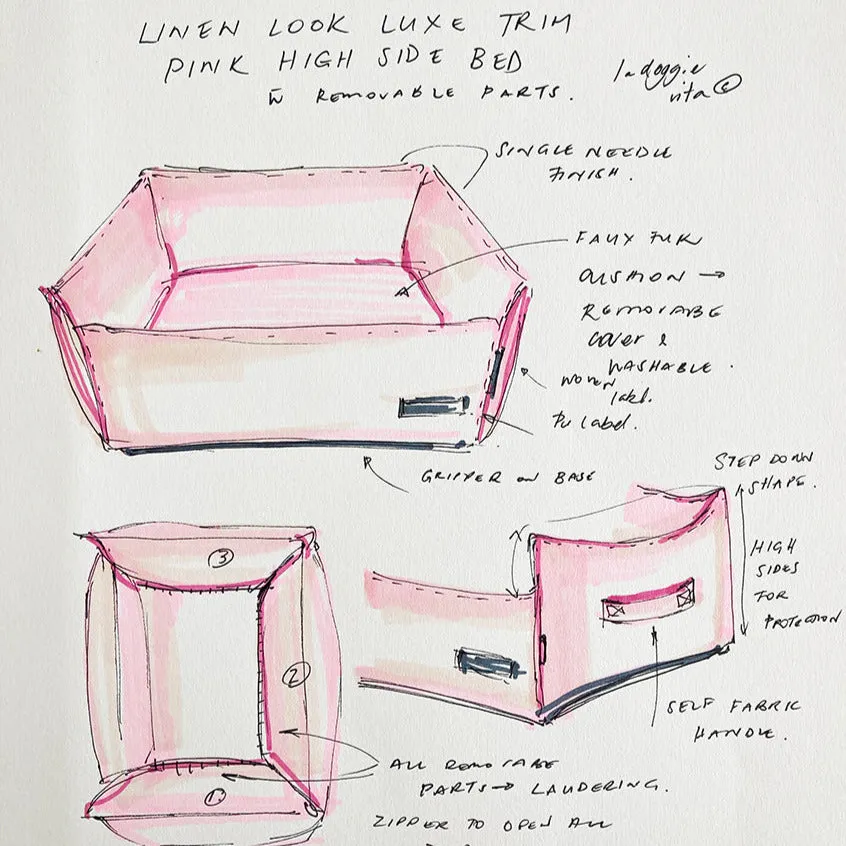 LINEN LOOK LUXE TRIM
PINK HIGH SIDE BED
W REMOVABLE PARTS.
la doggie
vita ©
SINGLE NEEDLE
FINISH.
FAUX FUR
CUSHION →
REMOVABLE
cover &
WASHABLE.
WOVEN
label.
PU Label.
GRIPPER ON BASE
STEP DOWN
SHAPE.
HIGH
SIDES
FOR
PROTECTION
SELF FABRIC
HANDLE.
3
2
1.
ALL REMOVABE
PARTS → LAUDERING.
ZIPPER TO OPEN ALL